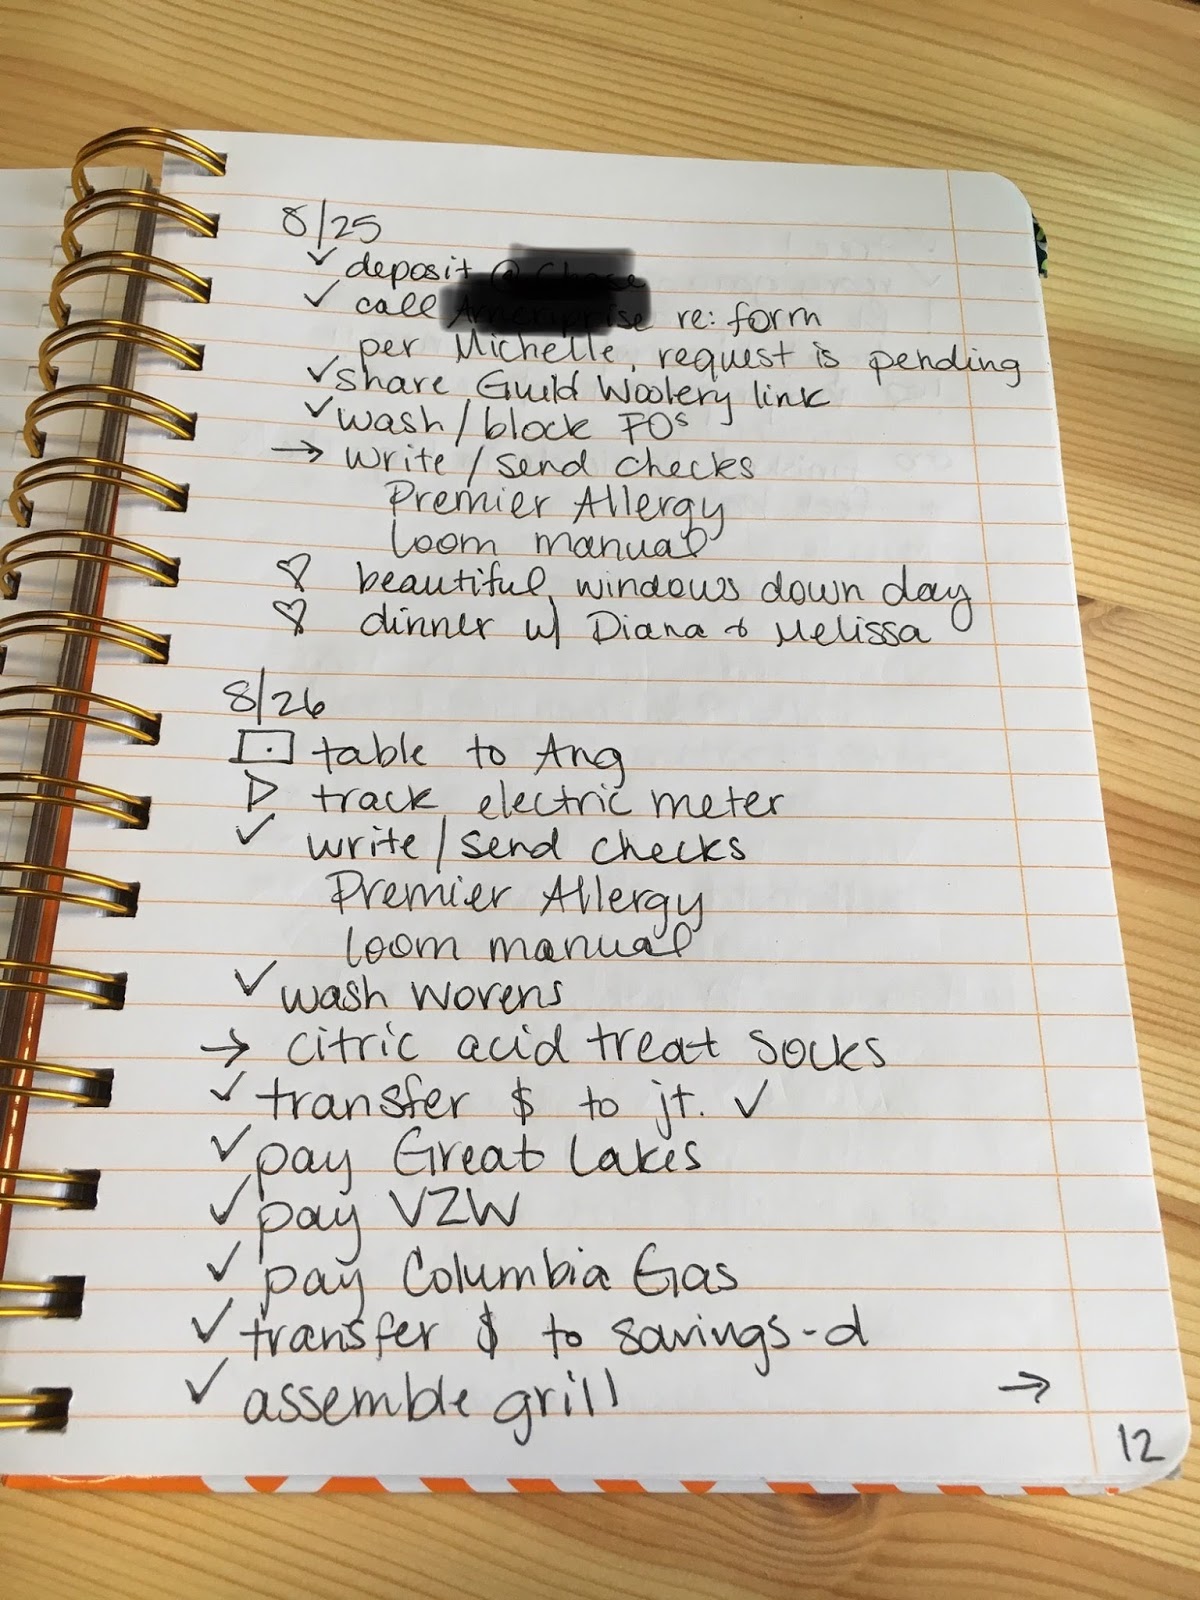 8/25
✓ deposit @
✓ call re: form
per Michelle, request is pending
✓ share Guild Woolery link
✓ wash/block FOs
→ write/send checks
Premier Allergy
loom manual
♡ beautiful windows down day
♡ dinner w/ Diana & Melissa
8/26
⊡ table to Ang
▷ track electric meter
✓ write/send checks
Premier Allergy
loom manual
✓ wash wovens
→ citric acid treat socks
✓ transfer $ to jt. ✓
✓ pay Great Lakes
✓ pay VZW
✓ pay Columbia Gas
✓ transfer $ to savings-d
✓ assemble grill
→
12